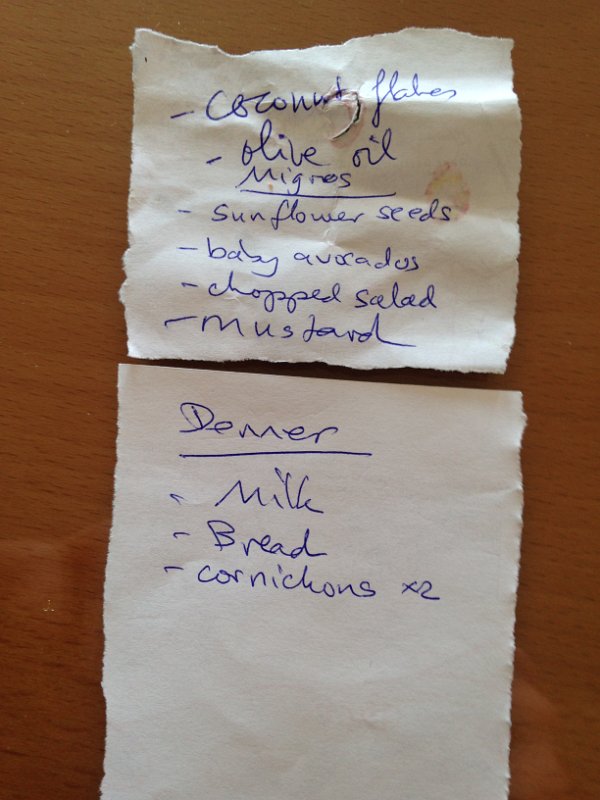 - coconut flakes
- olive oil
Migros
- sunflower seeds
- baby avocados
- chopped salad
- mustard
Denner
- Milk
- Bread
- cornichons x2